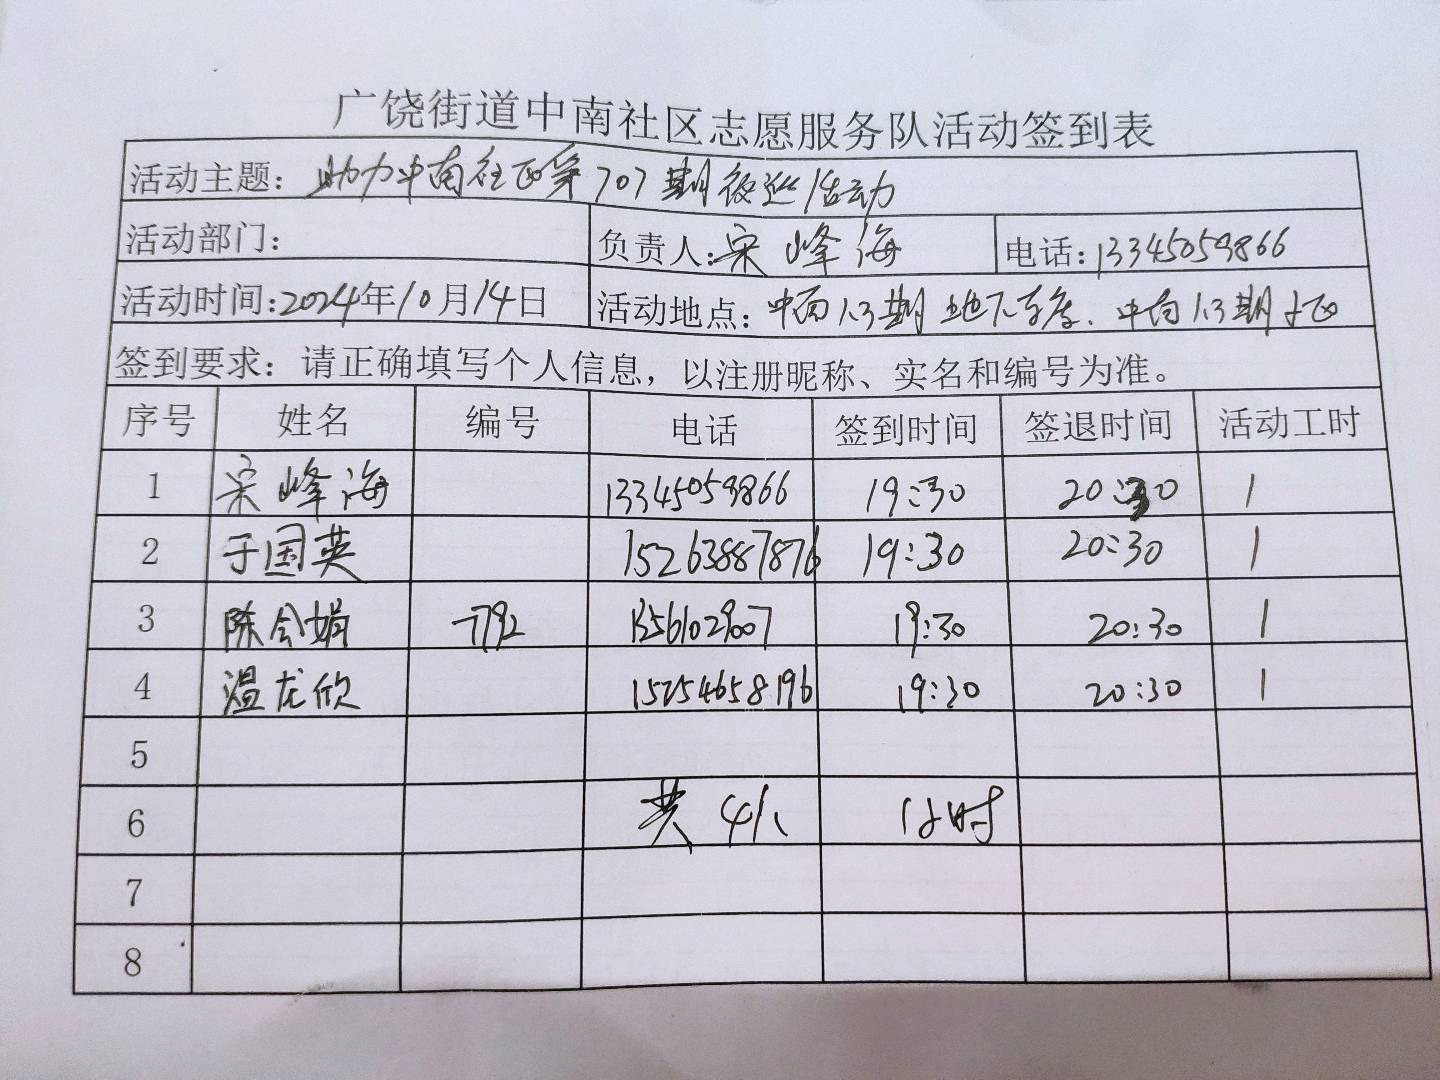 广饶街道中南社区志愿服务队活动签到表
活动主题: 助力中南社区第707期夜巡活动
活动部门:
负责人: 宋峰海
电话: 13345059866
活动时间: 2024年10月14日
活动地点: 中南1.3期地下车库、中南1.3期小区
签到要求: 请正确填写个人信息，以注册昵称、实名和编号为准。
序号 姓名 编号 电话 签到时间 签退时间 活动工时
1 宋峰海 13345059866 19:30 20:30 1
2 于国英 15263887876 19:30 20:30 1
3 陈会娟 7792 13561029007 19:30 20:30 1
4 温龙欣 15254658196 19:30 20:30 1
5
6 共4人 1小时
7
8